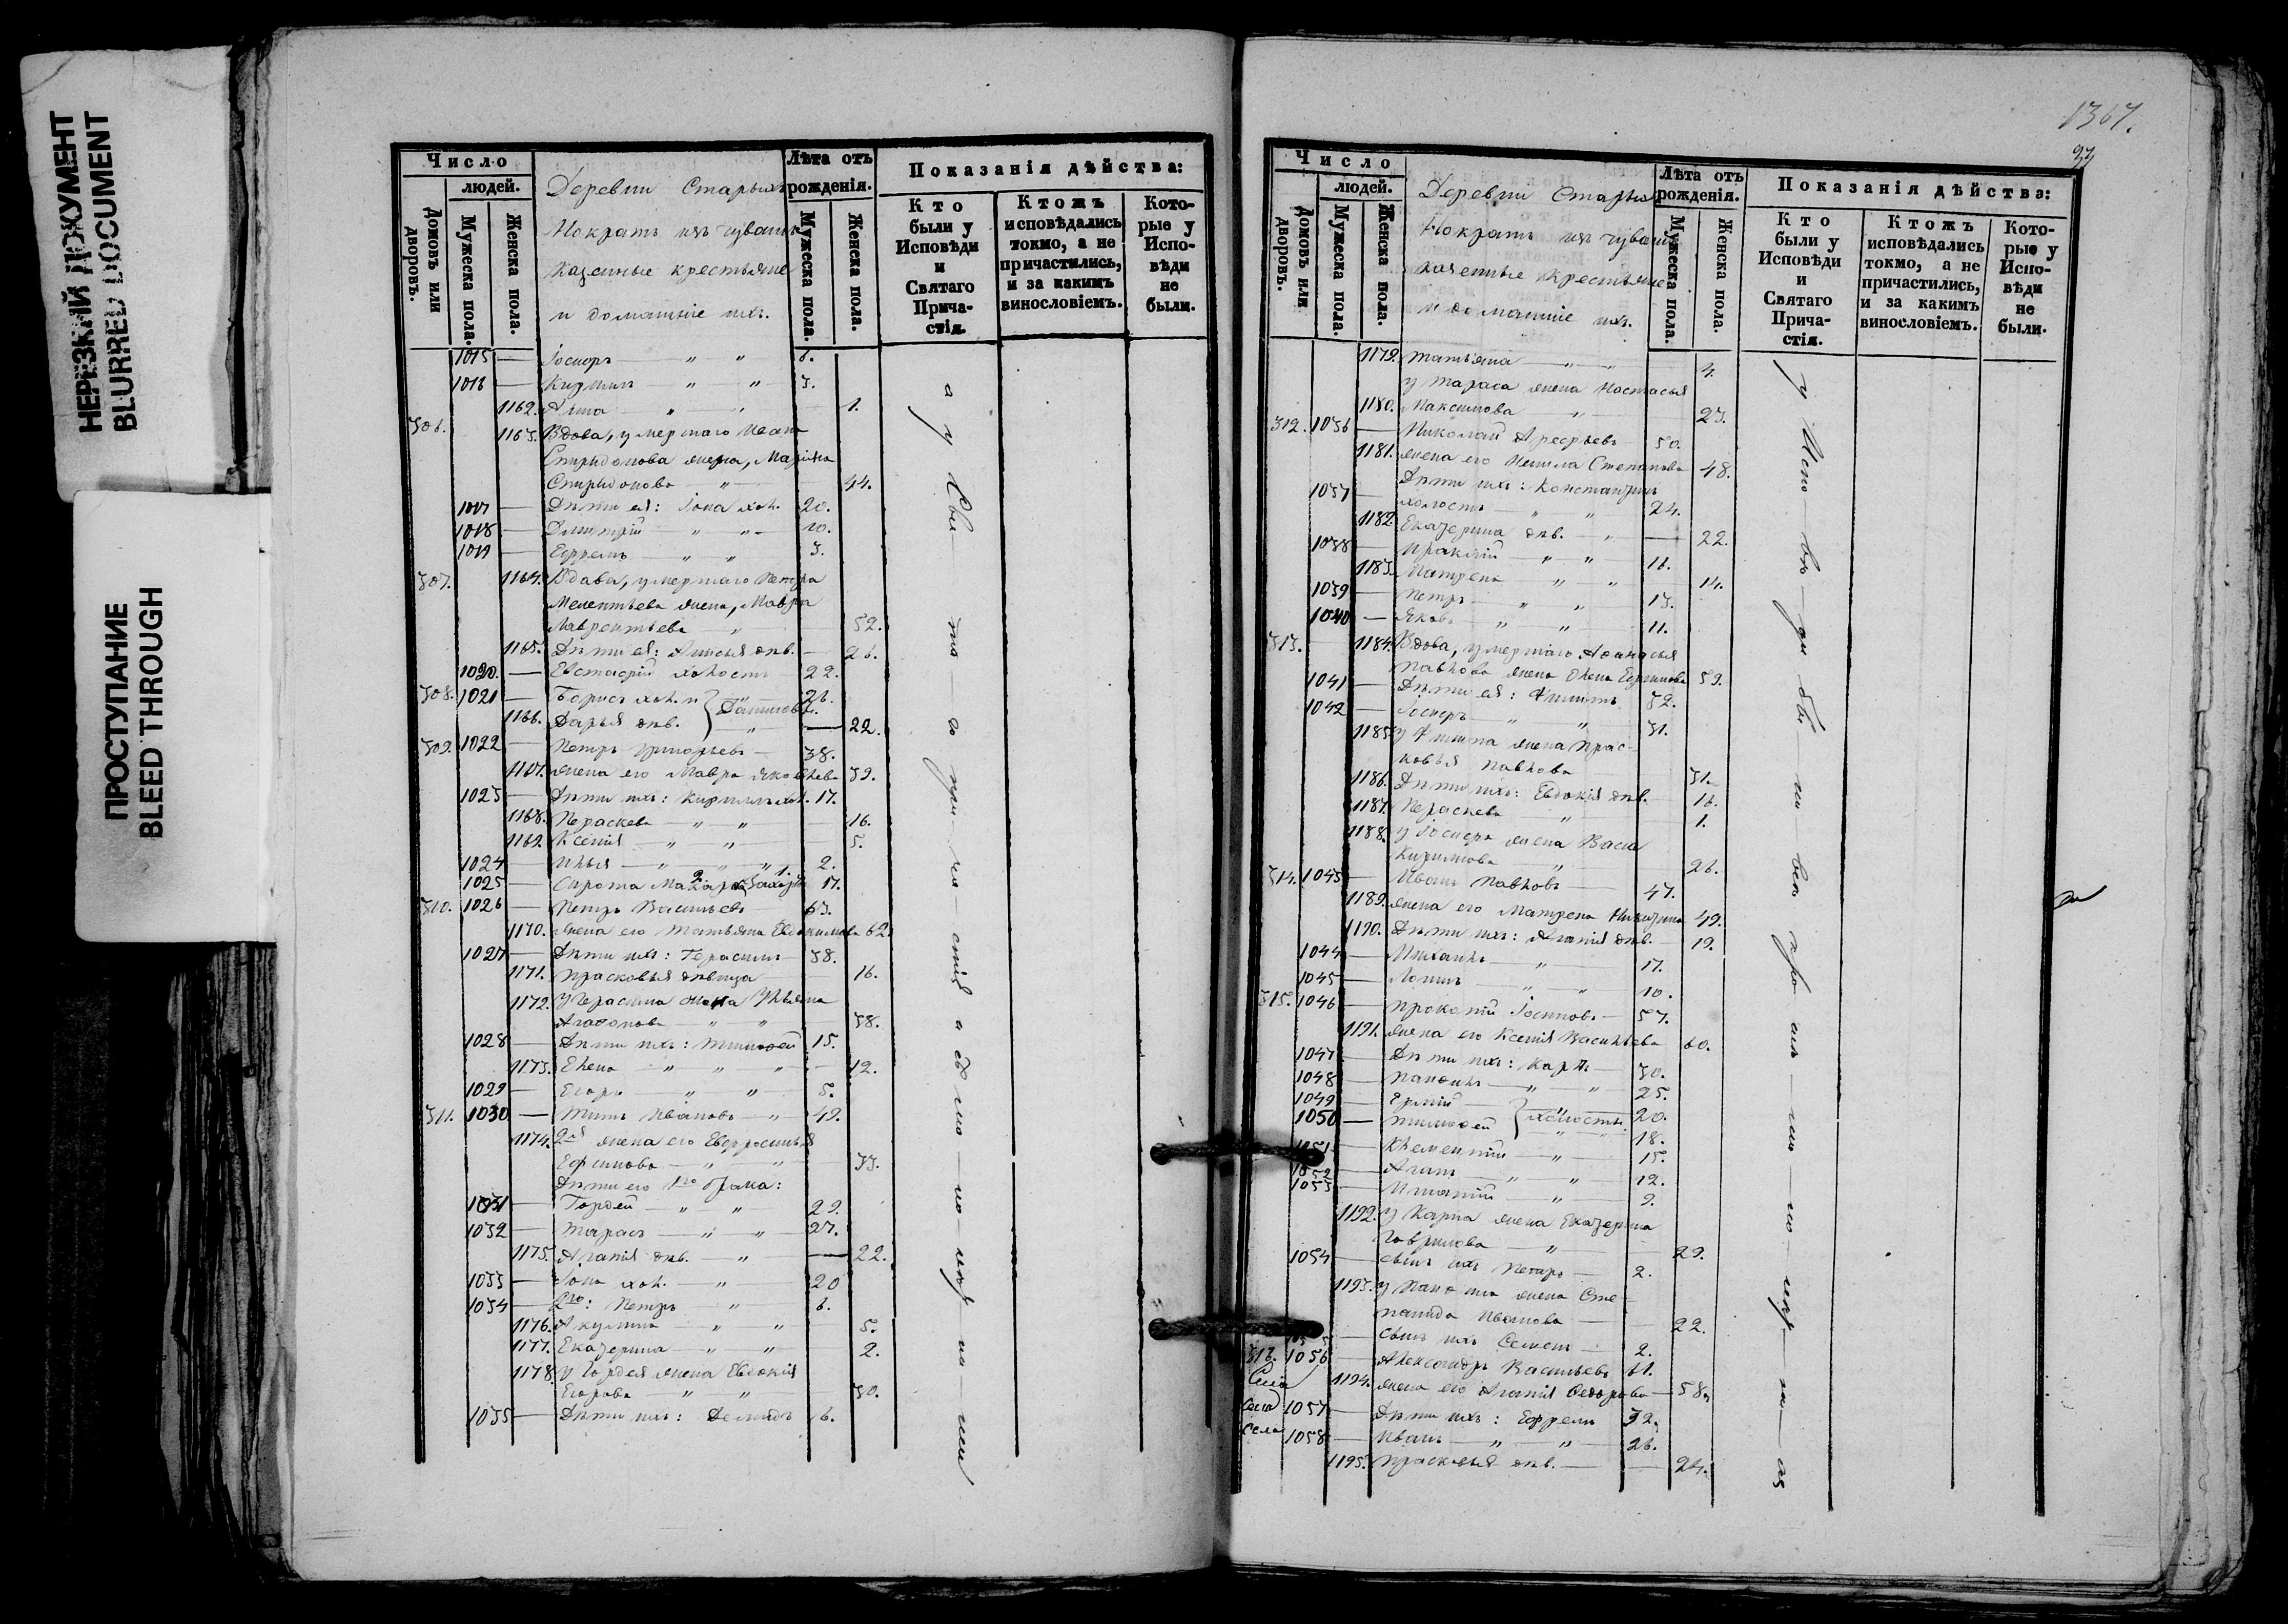 НЕРЕЗКИЙ ДОКУМЕНТ
BLURRED DOCUMENT
ПРОСТУПАНИЕ
BLEED THROUGH
Число
людей.
Домовъ или дворовъ.
Мужеска пола.
Женска пола.
Деревни Старыхъ
Мократъ изъ чувашъ
казенные крестьяне
и домашніе ихъ.
Лѣта отъ рожденія.
Мужеска пола.
Женска пола.
Показанія дѣйства:
Кто были у Исповѣди и Святаго Прича-стія.
Ктожъ исповѣдались токмо, а не причастились, и за какимъ винословіемъ.
Кото-рые у Испо-вѣди не были.
1015 — Іосифъ — " " 6.
1016 — Кирилъ — " — " 3.
1162. Анна — " " — 1.
306. 1163. Вдова, умершаго Ивана
Спиридонова жена, Марина
Спиридонова — " — 44.
1017 — Дѣти ея: Іона хол. 20.
1018 — Димитрій " " 10.
1019 — Ефремъ — " " 3.
307. 1164. Вдова, умершаго Петра
Мелентьева жена, Мавра
Лаврентьева — " — 52.
1165. Дѣти ея: Анисья дѣв. — 26.
1020. — Евстафій холостъ — 22.
308. 1021 — Борисъ хол. и Даниловы. 26.
1166. Дарья дѣв. — " — 22.
309. 1022 — Петръ Григорьевъ — 38.
1167. жена его Мавра Яковлева 39.
1023 — Дѣти ихъ: Кириллъ хол. 17.
1168. Параскева — " — " — 16.
1169. Ксенія — " — " — 5.
1024 — Илья — " — " — " 2.
1025 — Сирота Макаръ Захаръ 17.
310. 1026 — Петръ Васильевъ 63.
1170. жена его Татьяна Евдокимова 62.
1027 — Дѣти ихъ: Герасимъ — 38.
1171. Прасковья дѣвица 16.
1172. У Герасима жена Ульяна
Агафонова — " — " — 38.
1028 — Дѣти ихъ: Тимофей 15.
1173. Елена — " — " — " — 12.
1029 — Егоръ — " — " 5.
311. 1030 — Титъ Ивановъ — " — 49.
1174. 2я жена его Евфросинья
Ефимова — " — " — 33.
Дѣти его 1го брака:
1031 — Гордей — " — " 29.
1032 — Тарасъ — " — " 27.
1175. Агапія дѣв. — " — 22.
1033 — Іона хол. — " — 20
1034 — 2го: Петръ — " — 6.
1176. Акулина — " — " 5.
1177. Екатерина — " — " 2.
1178. У Гордея жена Евдокія
Егорова — " — " 30.
1035 — Дѣти ихъ: Демидъ 6.
1367.
33
Число
людей.
Домовъ или дворовъ.
Мужеска пола.
Женска пола.
Деревни Старыхъ
Мократъ изъ чувашъ
казенные крестьяне
и домашніе ихъ.
Лѣта отъ рожденія.
Мужеска пола.
Женска пола.
Показанія дѣйства:
Кто были у Исповѣди и Святаго Прича-стія.
Ктожъ исповѣдались токмо, а не причастились, и за какимъ винословіемъ.
Кото-рые у Испо-вѣди не были.
1179. Татьяна — " — 4.
У Тараса жена Настасья
1180. Максимова " — 23.
312. 1036 — Николай Арефьевъ 50.
1181. жена его Степанова 48.
1037 — Дѣти ихъ: Константинъ
холостъ — " " 24.
1182. Екатерина дѣв. — " — 22.
1038 — Ираклій " — " 16.
1183. Матрена " " 14.
1039 — Петръ — " " 13.
1040 — Яковъ — " " 11.
313. 1184. Вдова, умершаго Афанасья
Павлова жена Елена Ефимова 59.
1041 — Дѣти ея: Филиппъ 32.
1042 — Іосифъ — " " 31.
1185. У Филиппа жена Прас-
ковья Павлова — 31.
1186. Дѣти ихъ: Евдокія дѣв. — 16.
1187. Параскева " — 1.
1188. У Іосифа жена Васса
Кирилова " — 26.
314. 1043 — Иванъ Павловъ — 47.
1189. жена его Матрена Никитина 49.
1190. Дѣти ихъ: Агапія дѣв. — 19.
1044 — Михаилъ — " 17.
1045 — Логинъ — " " 10.
315. 1046 — Прокопій Іосифовъ — 57.
1191. жена его Ксенія Васильева 60.
1047 — Дѣти ихъ: Карпъ — 30.
1048 — Панфилъ — " " 25.
1049 — Ермій — холосты. 20.
1050 — Тимофей — " " 18.
1051 — Клементій — " 15.
1052 — Агапъ — " " 12.
1053 — Игнатій — " 9.
1192. У Карпа жена Екатерина
Гаврилова — " — 29.
1054 — сынъ ихъ Петръ — 2.
1193. У Панфила жена Сте-
панида Иванова — 22.
1055 — сынъ ихъ Семенъ — 2.
316. 1056 — Александръ Васильевъ 61.
Села
1194. жена его Агапія Федорова — 58.
Села
1057 — Дѣти ихъ: Ефремъ 32.
Села
1058 — Иванъ — " — " 26.
1195. Прасковья дѣв. — 24.